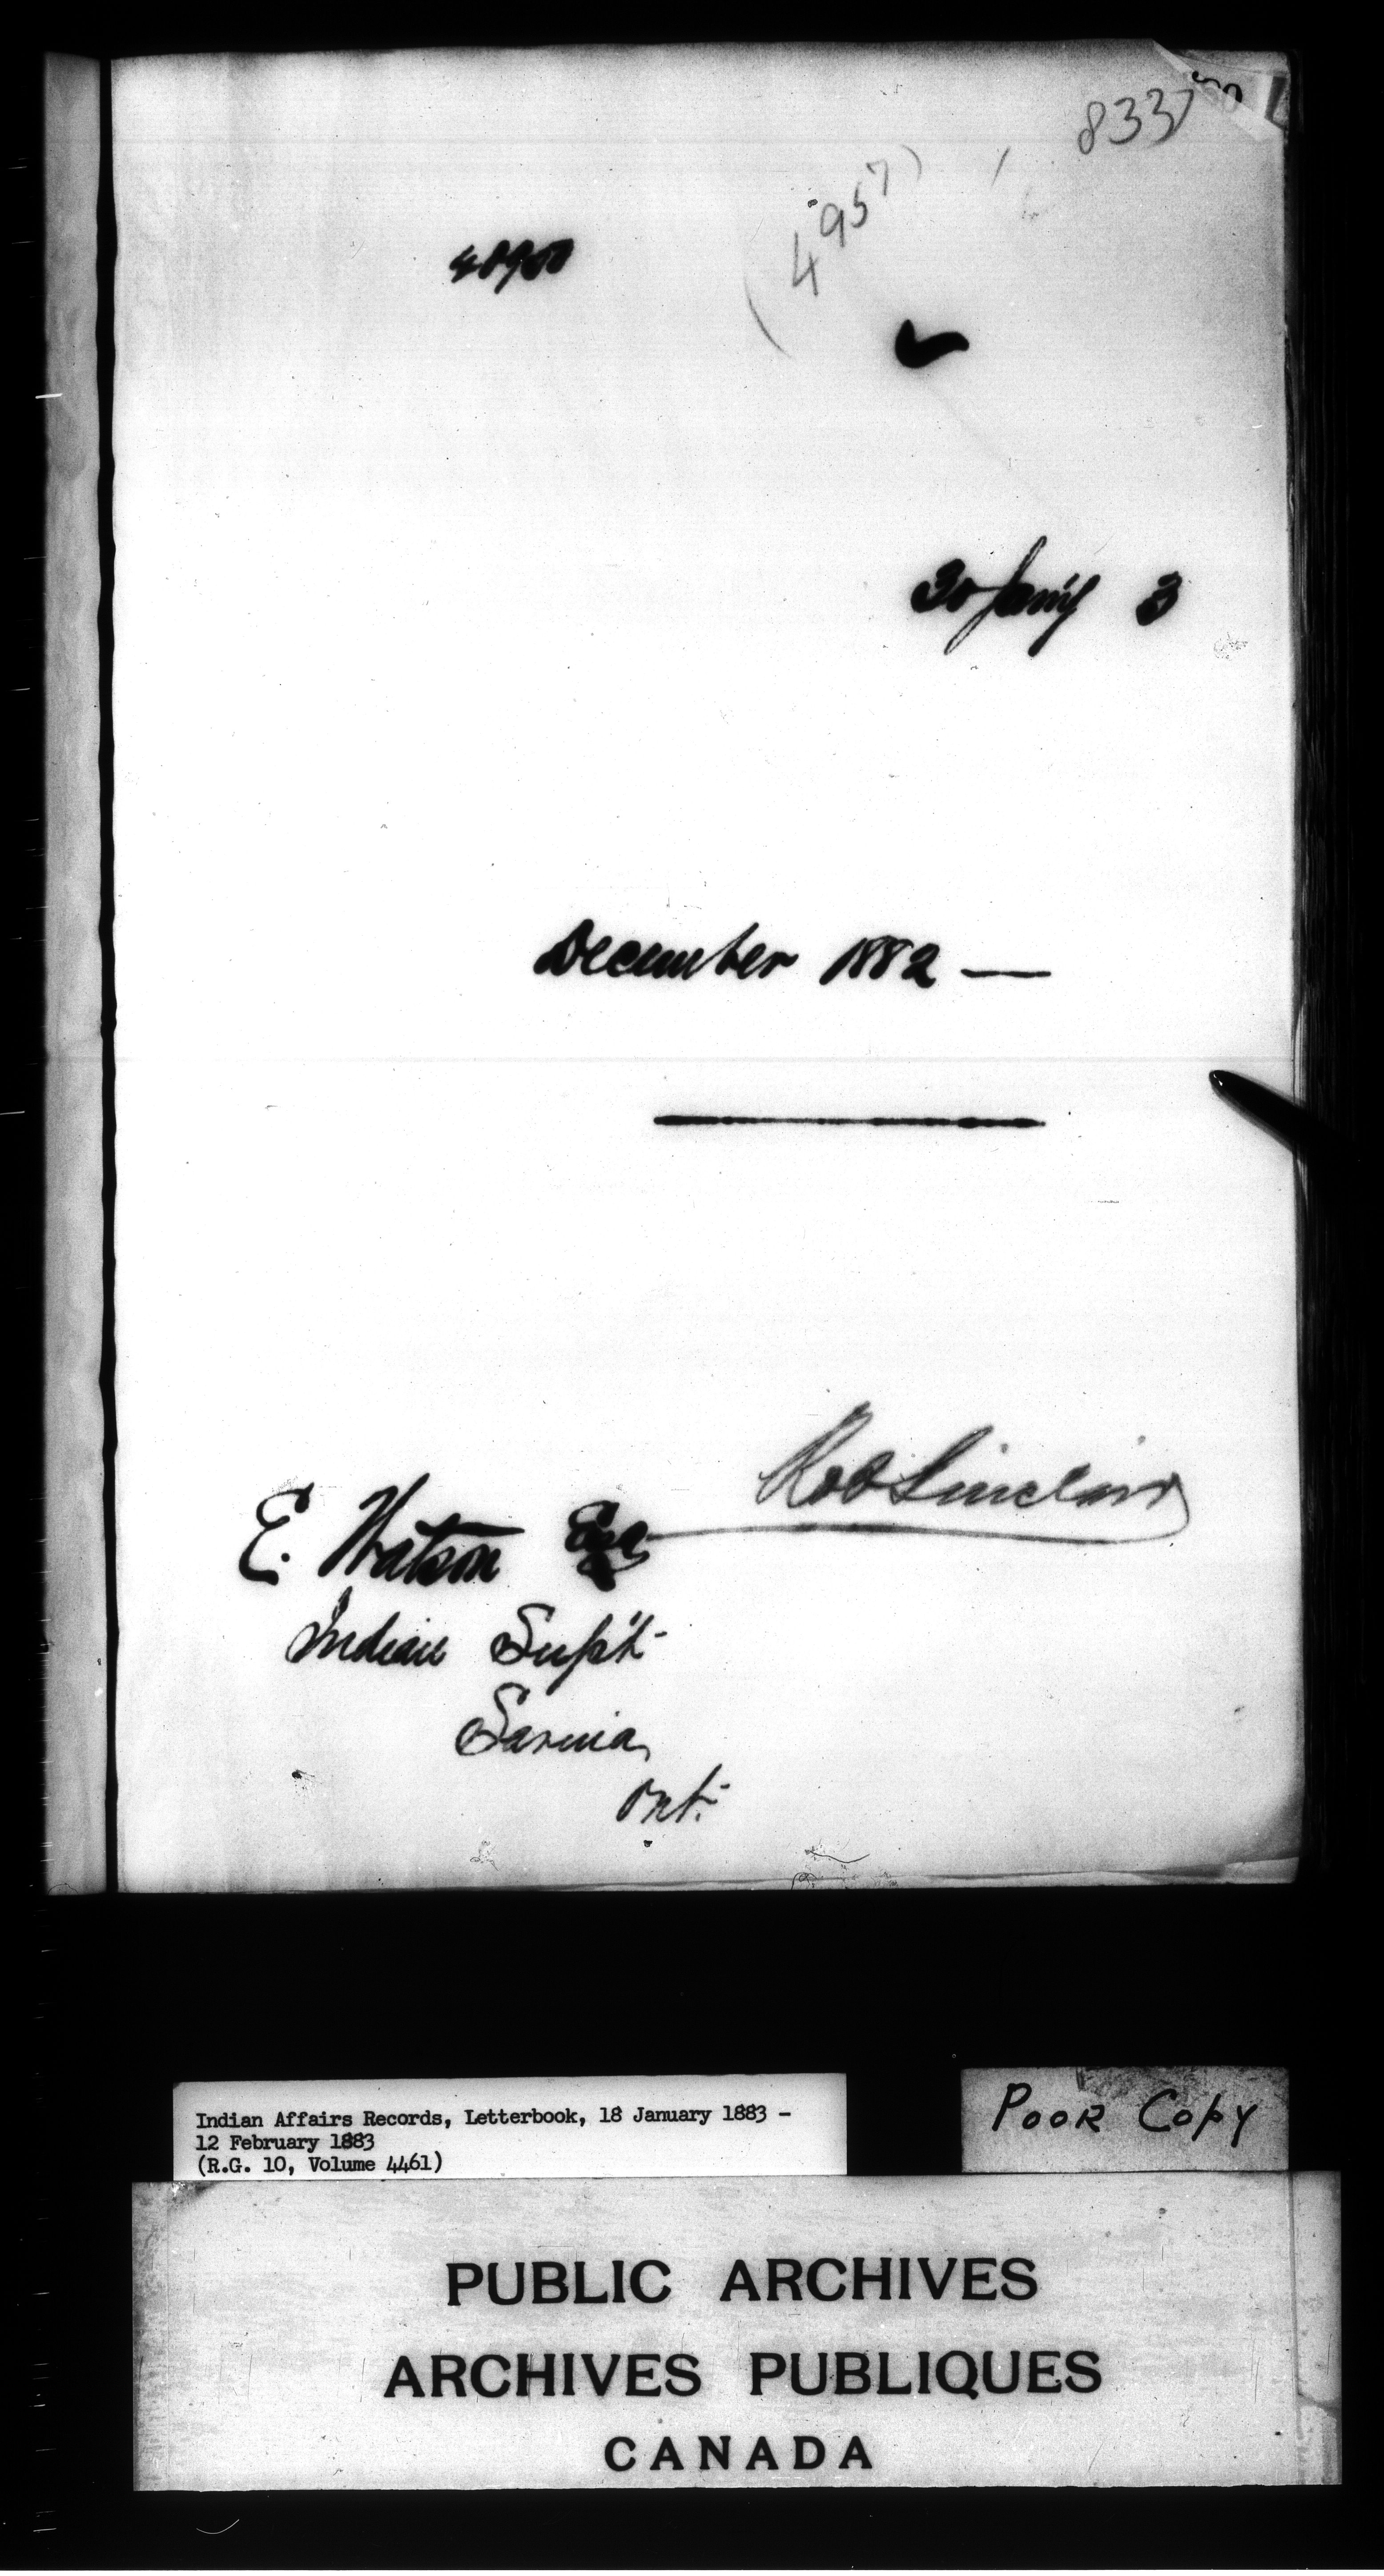 8337
(4957)
30 Jan'y 3
December 1882 —
Rob Sinclair
E. Watson Esq
Indian Sup't
Sarnia
Ont.
Indian Affairs Records, Letterbook, 18 January 1883 -
12 February 1883
(R.G. 10, Volume 4461)
POOR COPY
PUBLIC ARCHIVES
ARCHIVES PUBLIQUES
CANADA